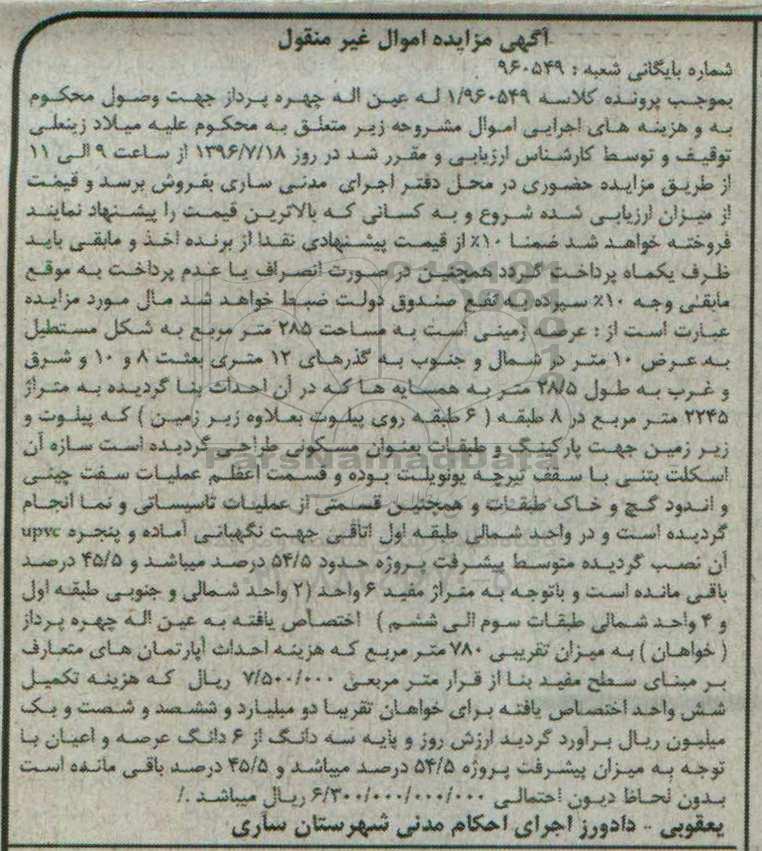 آگهی مزایده اموال غیر منقول
شماره بایگانی شعبه : ۹۶۰۵۴۹
بموجب پرونده کلاسه ۱/۹۶۰۵۴۹ له عین اله چهره پرداز جهت وصول محکوم
به و هزینه های اجرایی اموال مشروحه زیر متعلق به محکوم علیه میلاد زینعلی
توقیف و توسط کارشناس ارزیابی و مقرر شد در روز ۱۳۹۶/۷/۱۸ از ساعت ۹ الی ۱۱
از طریق مزایده حضوری در محل دفتر اجرای مدنی ساری بفروش برسد و قیمت
از میزان ارزیابی شده شروع و به کسانی که بالاترین قیمت را پیشنهاد نمایند
فروخته خواهد شد ضمنا ۱۰٪ از قیمت پیشنهادی نقدا از برنده اخذ و مابقی باید
ظرف یکماه پرداخت گردد همچنین در صورت انصراف یا عدم پرداخت به موقع
مابقی وجه ۱۰٪ سپرده به نفع صندوق دولت ضبط خواهد شد مال مورد مزایده
عبارت است از : عرصه زمینی است به مساحت ۲۸۵ متر مربع به شکل مستطیل
به عرض ۱۰ متر در شمال و جنوب به گذرهای ۱۲ متری بعثت ۸ و ۱۰ و شرق
و غرب به طول ۲۸/۵ متر به همسایه ها که در آن احداث بنا گردیده به متراژ
۲۲۴۵ متر مربع در ۸ طبقه ( ۶ طبقه روی پیلوت بعلاوه زیر زمین ) که پیلوت و
زیر زمین جهت پارکینگ و طبقات بعنوان مسکونی طراحی گردیده است سازه آن
اسکلت بتنی با سقف تیرچه یونولیت بوده و قسمت اعظم عملیات سفت چینی
و اندود گچ و خاک طبقات و همچنین قسمتی از عملیات تاسیساتی و نما انجام
گردیده است و در واحد شمالی طبقه اول اتاقی جهت نگهبانی آماده و پنجره upvc
آن نصب گردیده متوسط پیشرفت پروژه حدود ۵۴/۵ درصد میباشد و ۴۵/۵ درصد
باقی مانده است و باتوجه به متراژ مفید ۶ واحد (۲ واحد شمالی و جنوبی طبقه اول
و ۴ واحد شمالی طبقات سوم الی ششم ) اختصاص یافته به عین اله چهره پرداز
( خواهان ) به میزان تقریبی ۷۸۰ متر مربع که هزینه احداث آپارتمان های متعارف
بر مبنای سطح مفید بنا از قرار متر مربعی ۷/۵۰۰/۰۰۰ ریال که هزینه تکمیل
شش واحد اختصاص یافته برای خواهان تقریبا دو میلیارد و ششصد و شصت و یک
میلیون ریال برآورد گردید ارزش روز و پایه سه دانگ از ۶ دانگ عرصه و اعیان با
توجه به میزان پیشرفت پروژه ۵۴/۵ درصد میباشد و ۴۵/۵ درصد باقی مانده است
بدون لحاظ دیون احتمالی ۶/۳۰۰/۰۰۰/۰۰۰/۰۰۰ ریال میباشد ./
یعقوبی - دادورز اجرای احکام مدنی شهرستان ساری